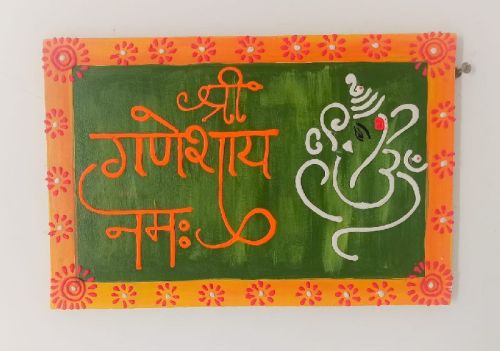 श्री
गणेशाय
नमः
ॐ